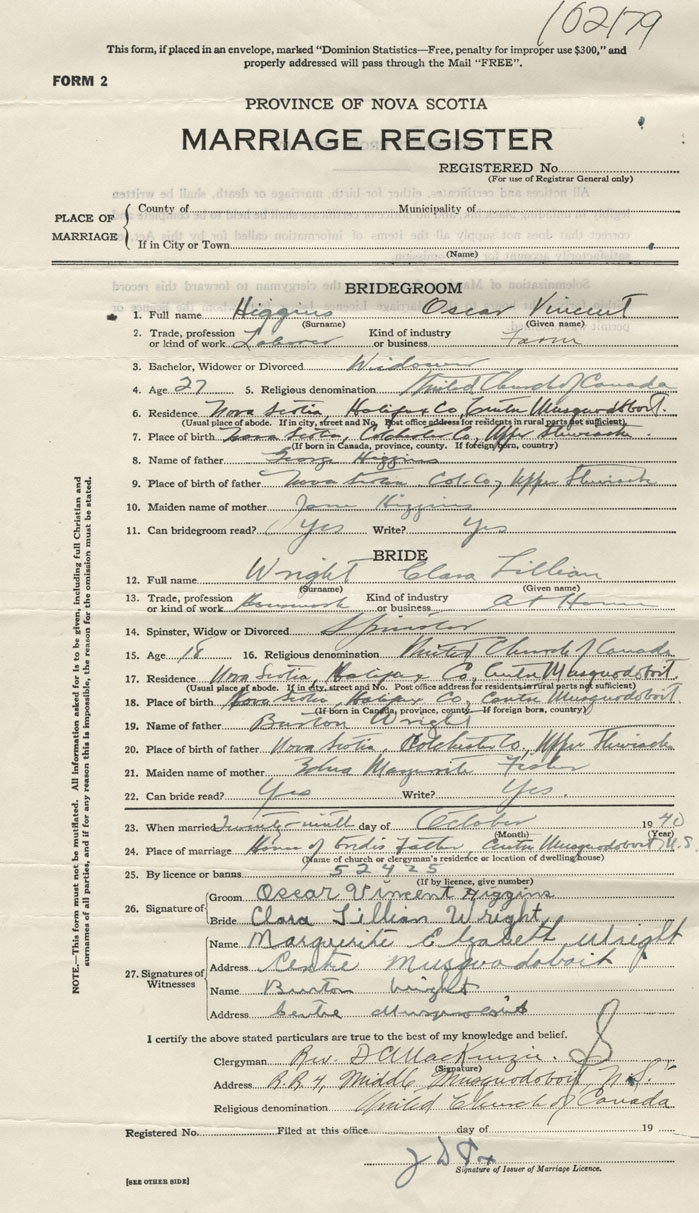 102179
This form, if placed in an envelope, marked "Dominion Statistics—Free, penalty for improper use $300," and
properly addressed will pass through the Mail "FREE".
FORM 2
PROVINCE OF NOVA SCOTIA
MARRIAGE REGISTER
REGISTERED No.
(For use of Registrar General only)
PLACE OF MARRIAGE
County of Municipality of
If in City or Town
(Name)
BRIDEGROOM
1. Full name Higgins Oscar Vincent
(Surname) (Given name)
2. Trade, profession or kind of work Laborer Kind of industry or business Farm
3. Bachelor, Widower or Divorced Widower
4. Age 27 5. Religious denomination United Church of Canada
6. Residence Nova Scotia, Halifax Co, Centre Musquodoboit.
(Usual place of abode. If in city, street and No. Post office address for residents in rural parts not sufficient)
7. Place of birth Nova Scotia, Colchester Co, Upper Stewiacke
(If born in Canada, province, county. If foreign born, country)
8. Name of father George Higgins
9. Place of birth of father Nova Scotia Col. Co, Upper Stewiacke
10. Maiden name of mother Jane Higgins
11. Can bridegroom read? Yes Write? Yes
BRIDE
12. Full name Wright Clara Lillian
(Surname) (Given name)
13. Trade, profession or kind of work Housework Kind of industry or business At Home
14. Spinster, Widow or Divorced Spinster
15. Age 18 16. Religious denomination United Church of Canada
17. Residence Nova Scotia, Halifax Co, Centre Musquodoboit
(Usual place of abode. If in city, street and No. Post office address for residents in rural parts not sufficient)
18. Place of birth Nova Scotia, Halifax Co, Centre Musquodoboit.
(If born in Canada, province, county. If foreign born, country)
19. Name of father Burton Wright
20. Place of birth of father Nova Scotia, Colchester Co, Upper Stewiacke
21. Maiden name of mother Marguerite Fisher
22. Can bride read? Yes Write? Yes.
23. When married Twenty-ninth day of October 1940
(Month) (Year)
24. Place of marriage Home of brides father, Centre Musquodoboit, N.S.
(Name of church or clergyman's residence or location of dwelling house)
25. By licence or banns 52425
(If by licence, give number)
26. Signature of Groom Oscar Vincent Higgins
Bride Clara Lillian Wright
27. Signatures of Witnesses
Name Marguerite Elizabeth Wright
Address Centre Musquodoboit
Name Burton Wright
Address Centre
I certify the above stated particulars are true to the best of my knowledge and belief.
Clergyman Rev. D A MacKenzie.
(Signature)
Address R.R. 4, Middle Musquodoboit N.S.
Religious denomination United Church of Canada
Registered No. Filed at this office day of 19
Signature of Issuer of Marriage Licence.
[SEE OTHER SIDE]
NOTE.—This form must not be mutilated. All information asked for is to be given, including full Christian and
surnames of all parties, and if for any reason this is impossible, the reason for the omission must be stated.